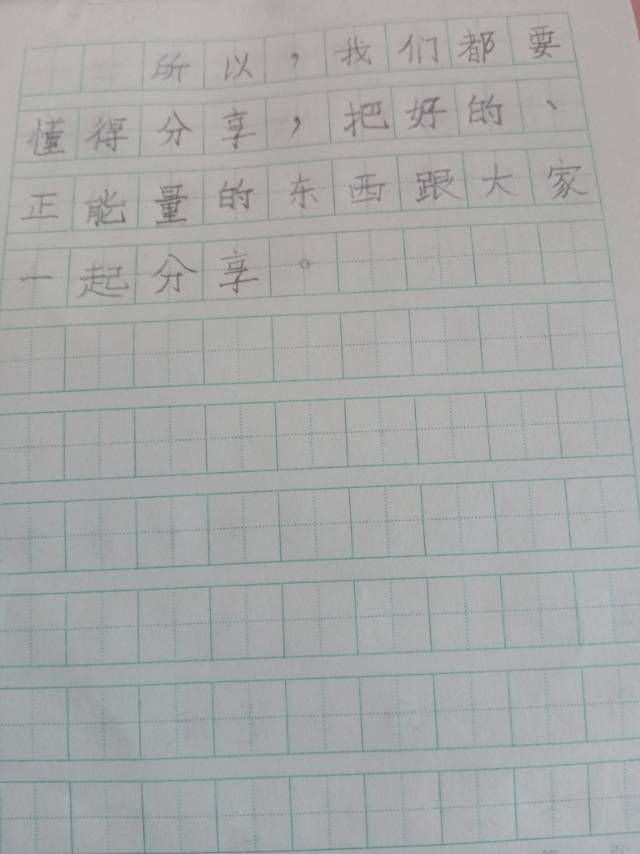 所以，我们都要
懂得分享，把好的、
正能量的东西跟大家
一起分享。